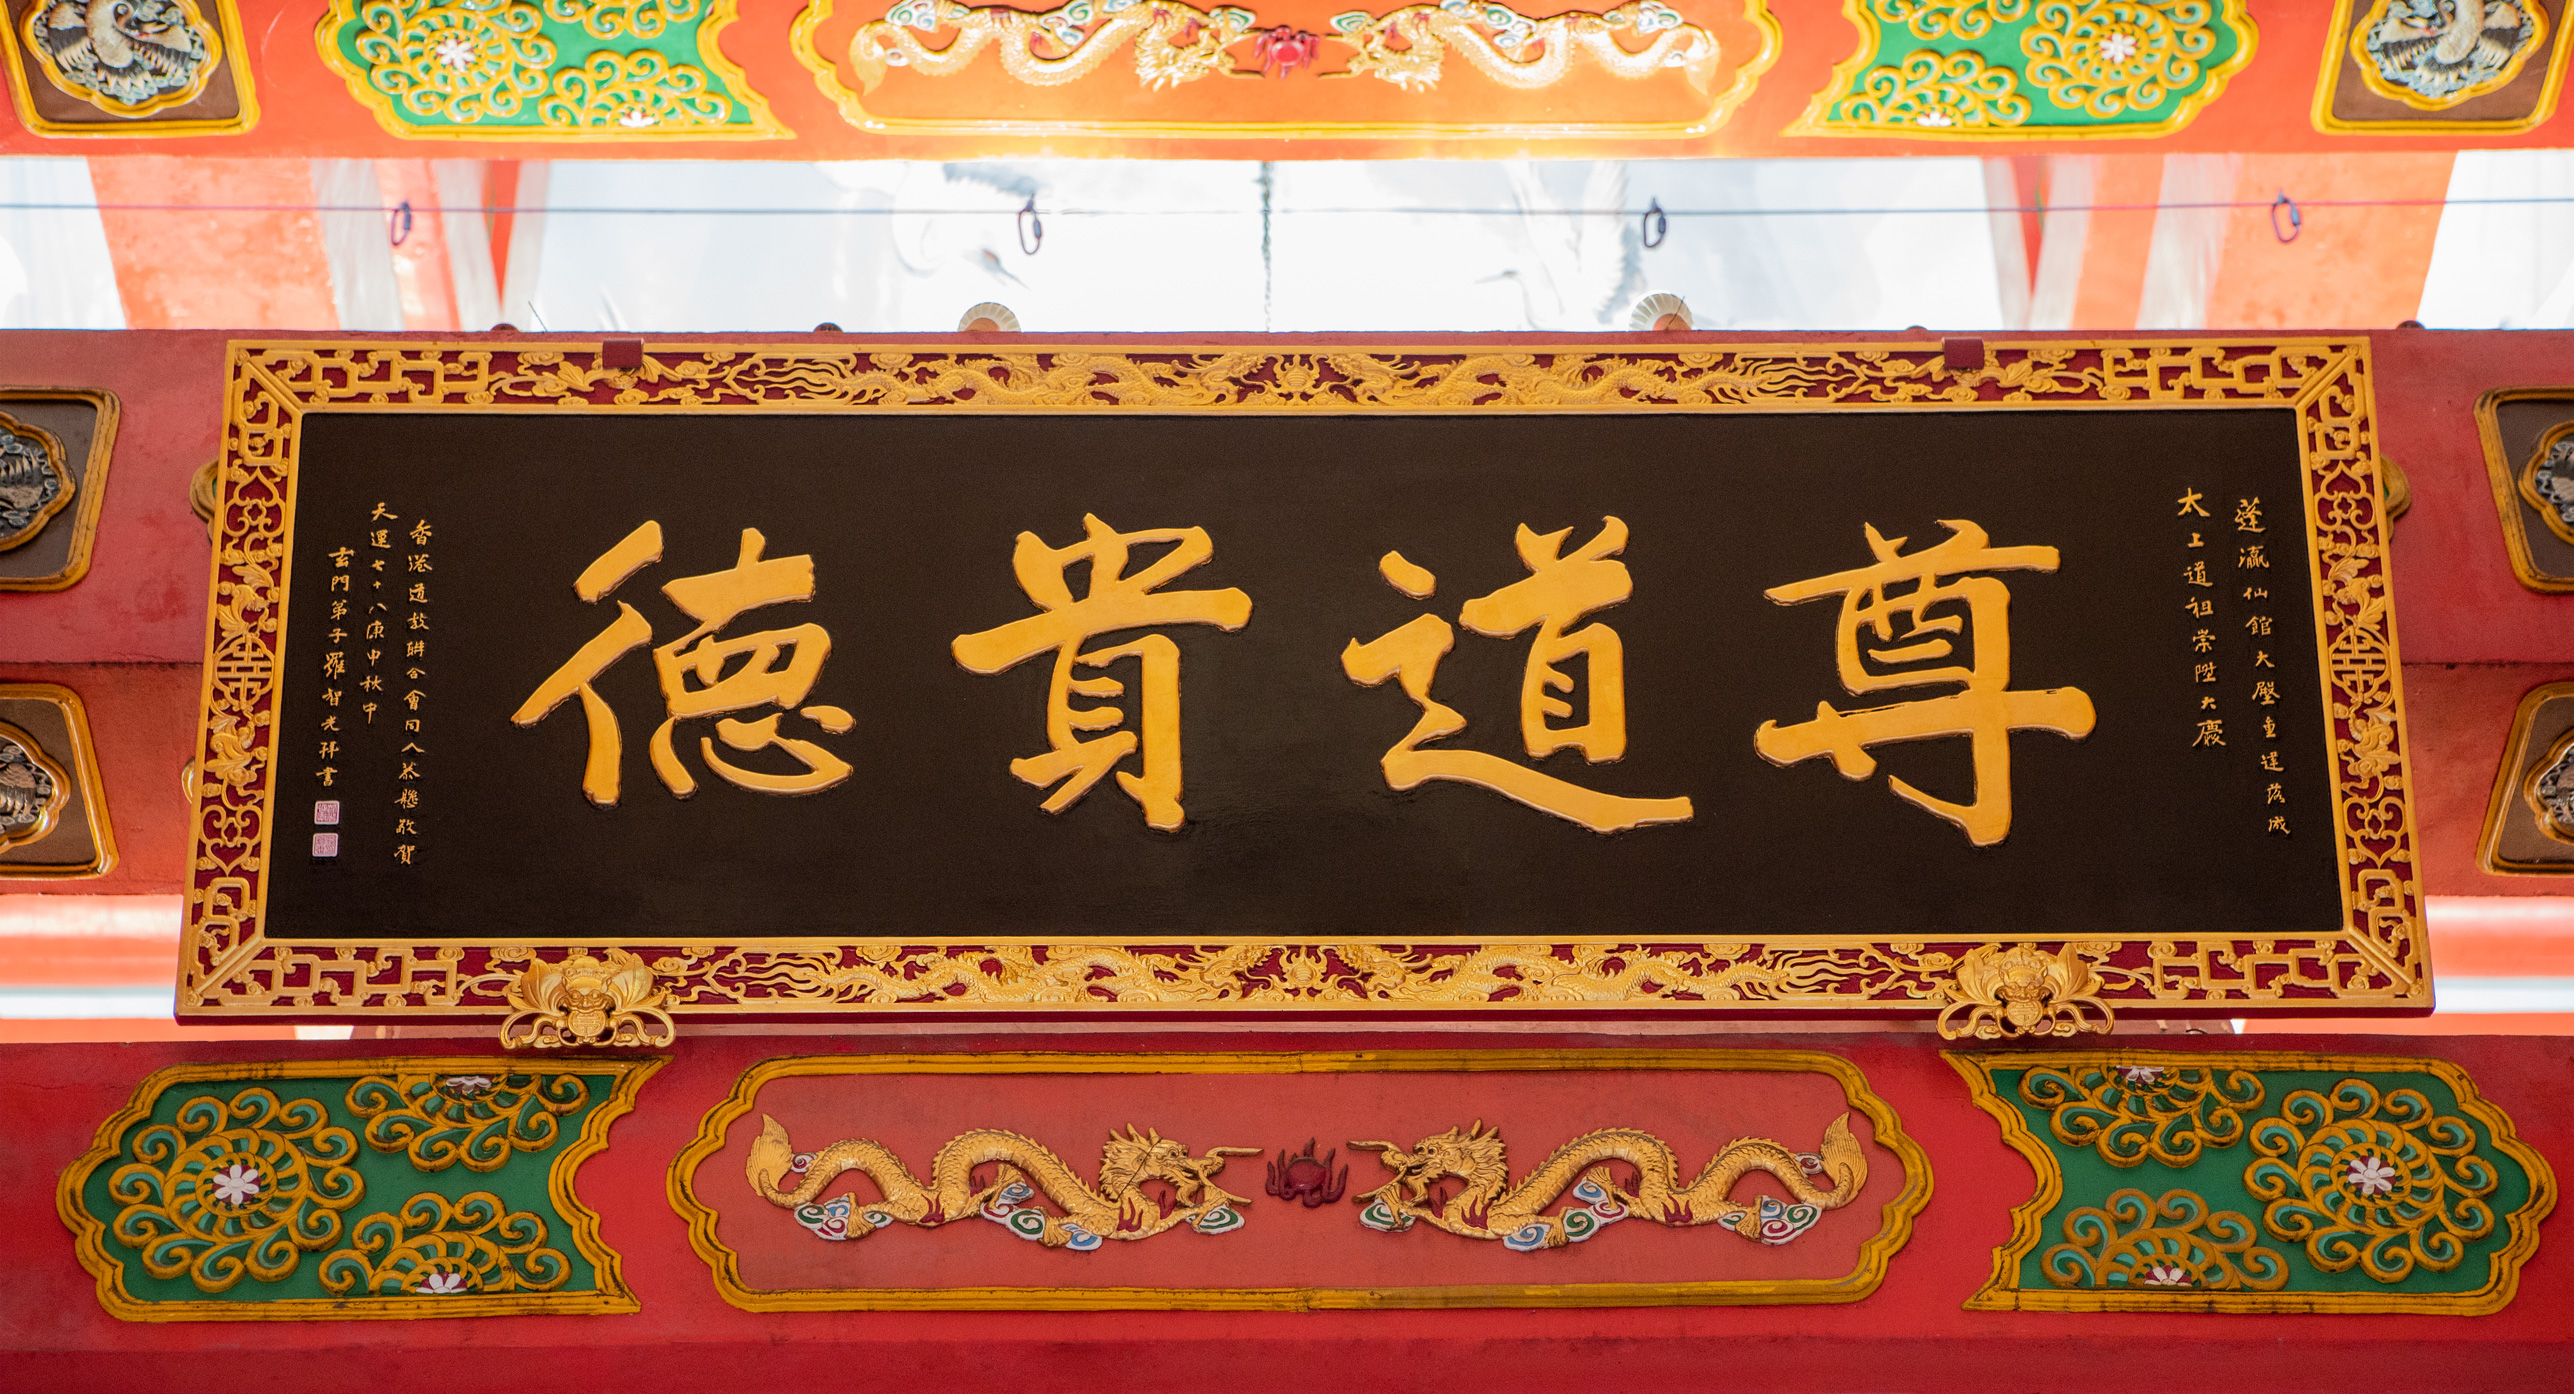 蓬瀛仙館大殿重建落成
太上道祖崇陞大慶
尊道貴德
香港道教聯合會同人恭懸敬賀
天運七十八庚申秋中
玄門弟子羅智光拜書